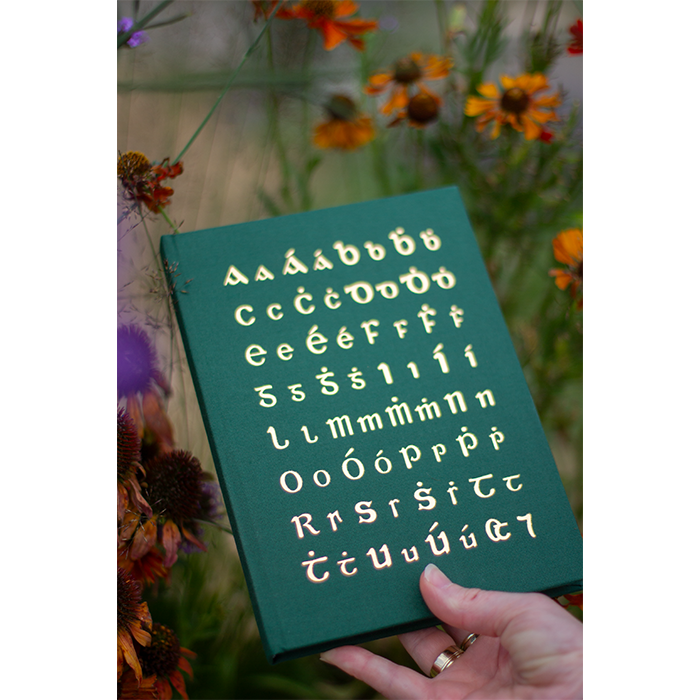 A a Á á B b Ḃ ḃ
C c Ċ ċ D d Ḋ ḋ
E e É é F f Ḟ ḟ
G g Ġ ġ I ı Í í
L l M m Ṁ ṁ N n
O o Ó ó P p Ṗ ṗ
R r S s Ṡ ṡ T t
Ṫ ṫ U u Ú ú & ⁊